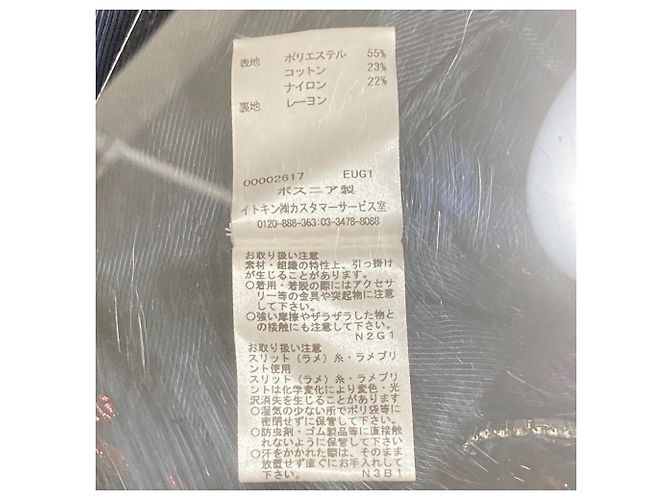 表地 ポリエステル 55%
コットン 23%
ナイロン 22%
裏地 レーヨン
00002617 EUG1
ボスニア製
イトキン㈱カスタマーサービス室
0120-888-363:03-3478-8088
お取り扱い注意
素材・組織の特性上、引っ掛け
が生じることがあります。
○着用・着脱の際にはアクセサ
リー等の金具や突起物に注意
して下さい。
○強い摩擦やザラザラした物と
の接触にも注意して下さい。
N2G1
お取り扱い注意
スリット(ラメ)糸・ラメプリ
ント使用
スリット(ラメ)糸・ラメプリ
ントは化学変化により変色・光
沢消失を生じることがあります
○湿気の少ない所でポリ袋等に
密閉せずに保管して下さい。
○防虫剤・ゴム製品等に直接触
れないように保管して下さい
○汗をかかれた際は、そのまま
放置せず直ぐにお手入れして
下さい。
N3B1